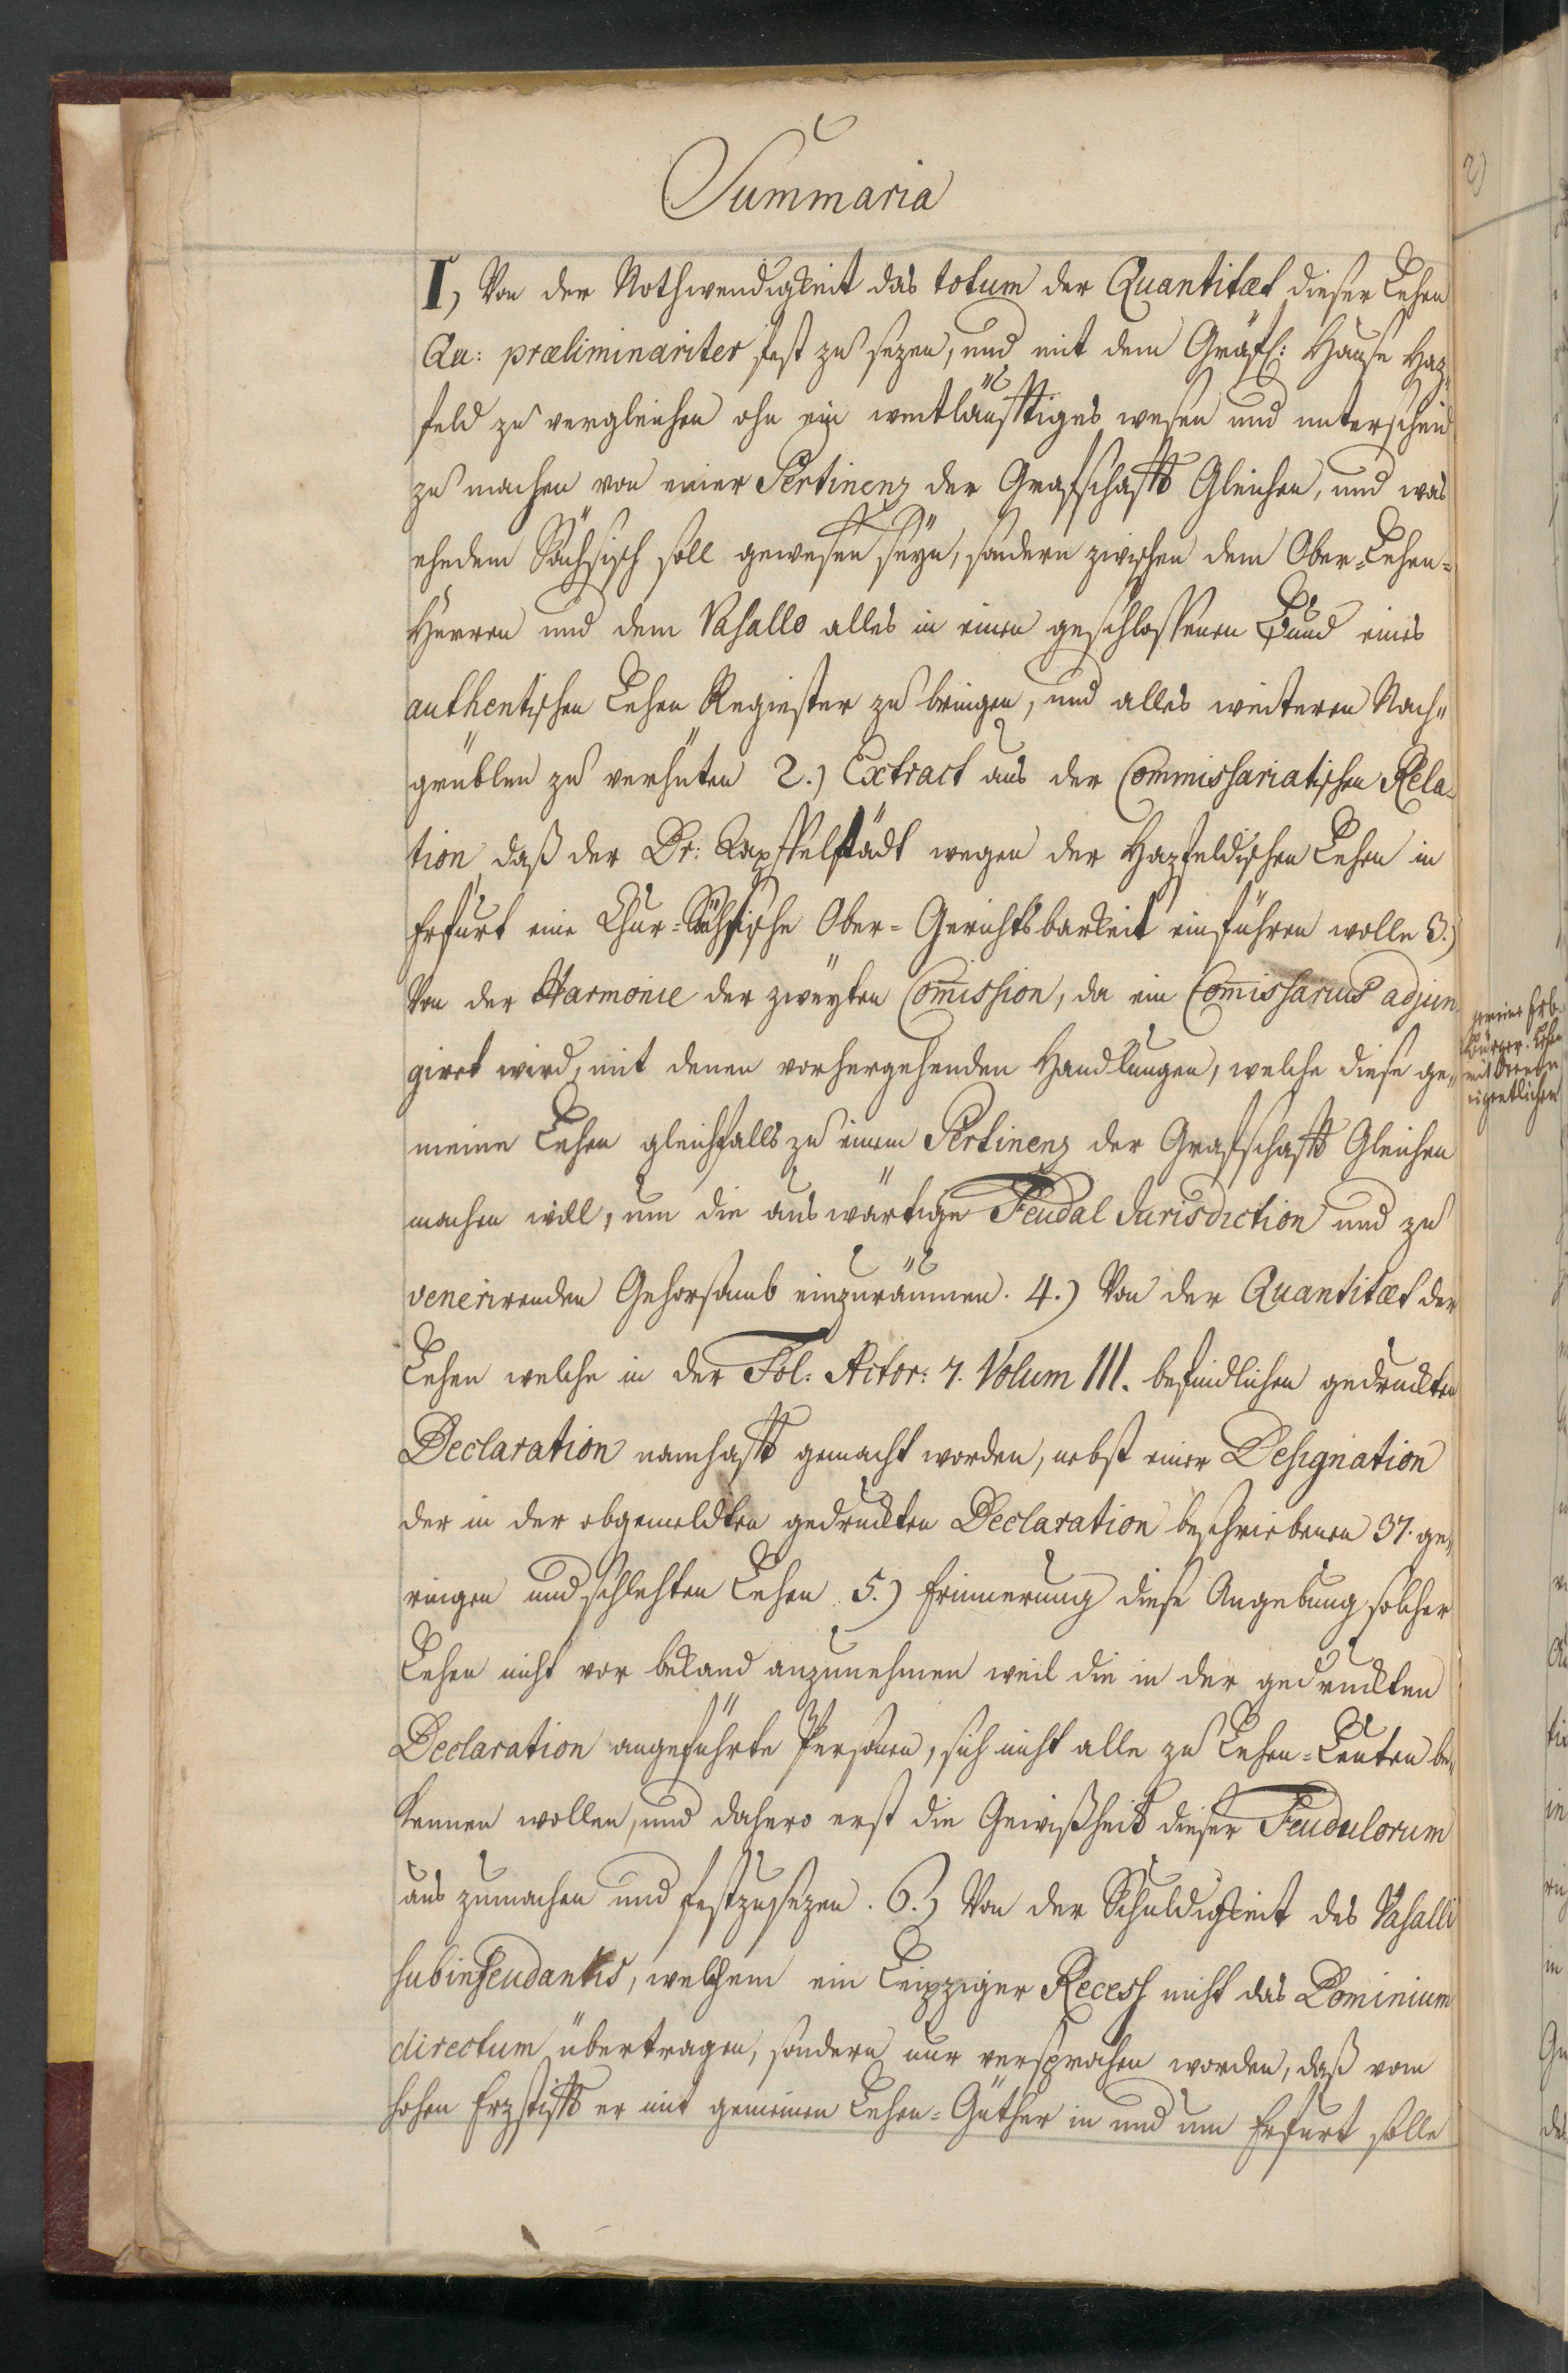 Summaria
I, Von der Nothwendigkeit das totum der Quantitæt dieser Lehen
Qu: præliminariter fest zu sezen, und mit dem Gräfl: Hause Haz„
feld zu vergleichen ohn ein weitläufftiges wesen und unterscheid
zu machen von einer Pertinenz der Grafschafft Gleichen, und was
ehedem Sächsisch soll gewesen seyn, sondern zwischen dem Ober-Lehen-
Herren und dem Vasallo alles in einen geschlossenen Bund eines
authentischen Lehen Register zu bringen, und alles weiteren Nach„
grüblen zu verhüten 2.) Extract aus der Commissariatischen Rela-
tion daß der Dr: wegen der Hazfeldischen Lehen in
Erfurt eine Chur-Sächsische Ober-Gerichtsbarkeit einführen wolle 3.)
Von der Harmonie der zweyten Com̅ission, da ein Com̅issarius adjun-
girt wird, mit denen vorhergehenden Handlungen, welche diese ge„
meine Lehen gleichfalls zu einem Pertinenz der Grafschafft Gleichen
machen will, um die auswärtige Feudal Jurisdiction und zu
venerirenden Gehorsamb einzuräumen. 4.) Von der Quantitæt der
Lehen welche in der Fol: Actor: 7. Volum III. befindlichen gedruckten
Declaration namhafft gemacht worden, nebst einer Designation
der in der obgemeldten gedruckten Declaration beschriebenen 37. ge„
ringen und schlechten Lehen. 5.) Erinnerung diese Angebung solcher
Lehen nicht vor bekand anzunehmen weil die in der gedruckten
Declaration angeführte Personen, sich nicht alle zu Lehen-Leuten be„
kennen wollen, und dahero erst die Gewißheit dieser Feudulorum
aus zumachen und festzusezen. 6.) Von der Schuldigkeit des Vasalli
subinfeudantis, welchem ein Leipziger Recess nicht das Dominium
directum übertragen, sondern nur versprochen worden, daß vom
hohen Erzstifft er mit gemeinen Lehen-Güther in und um Erfurt solle
2)
Bürger-Lehen
eigentlichen